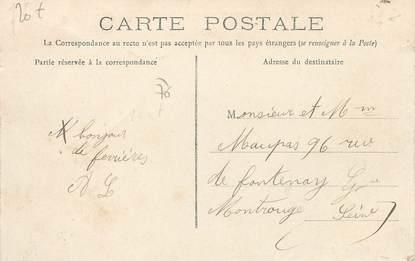 20f
CARTE POSTALE
La Correspondance au recto n'est pas acceptée par tous les pays étrangers (se renseigner à la Poste)
Partie réservée à la correspondance
Adresse du destinataire
70
Monsieur et Mm
Maupas 96 rue
de fontenay Gd
Montrouge (Seine)
bonjour
de ferrières
A L